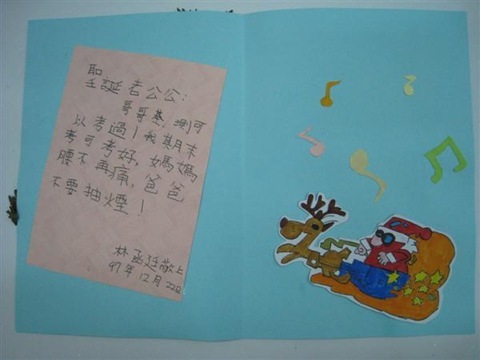 聖誕老公公：
哥哥基測可
以考過！我期末
考可考好，媽媽
腰不再痛，爸爸
不要抽煙！
林丞廷敬上
97年12月22日